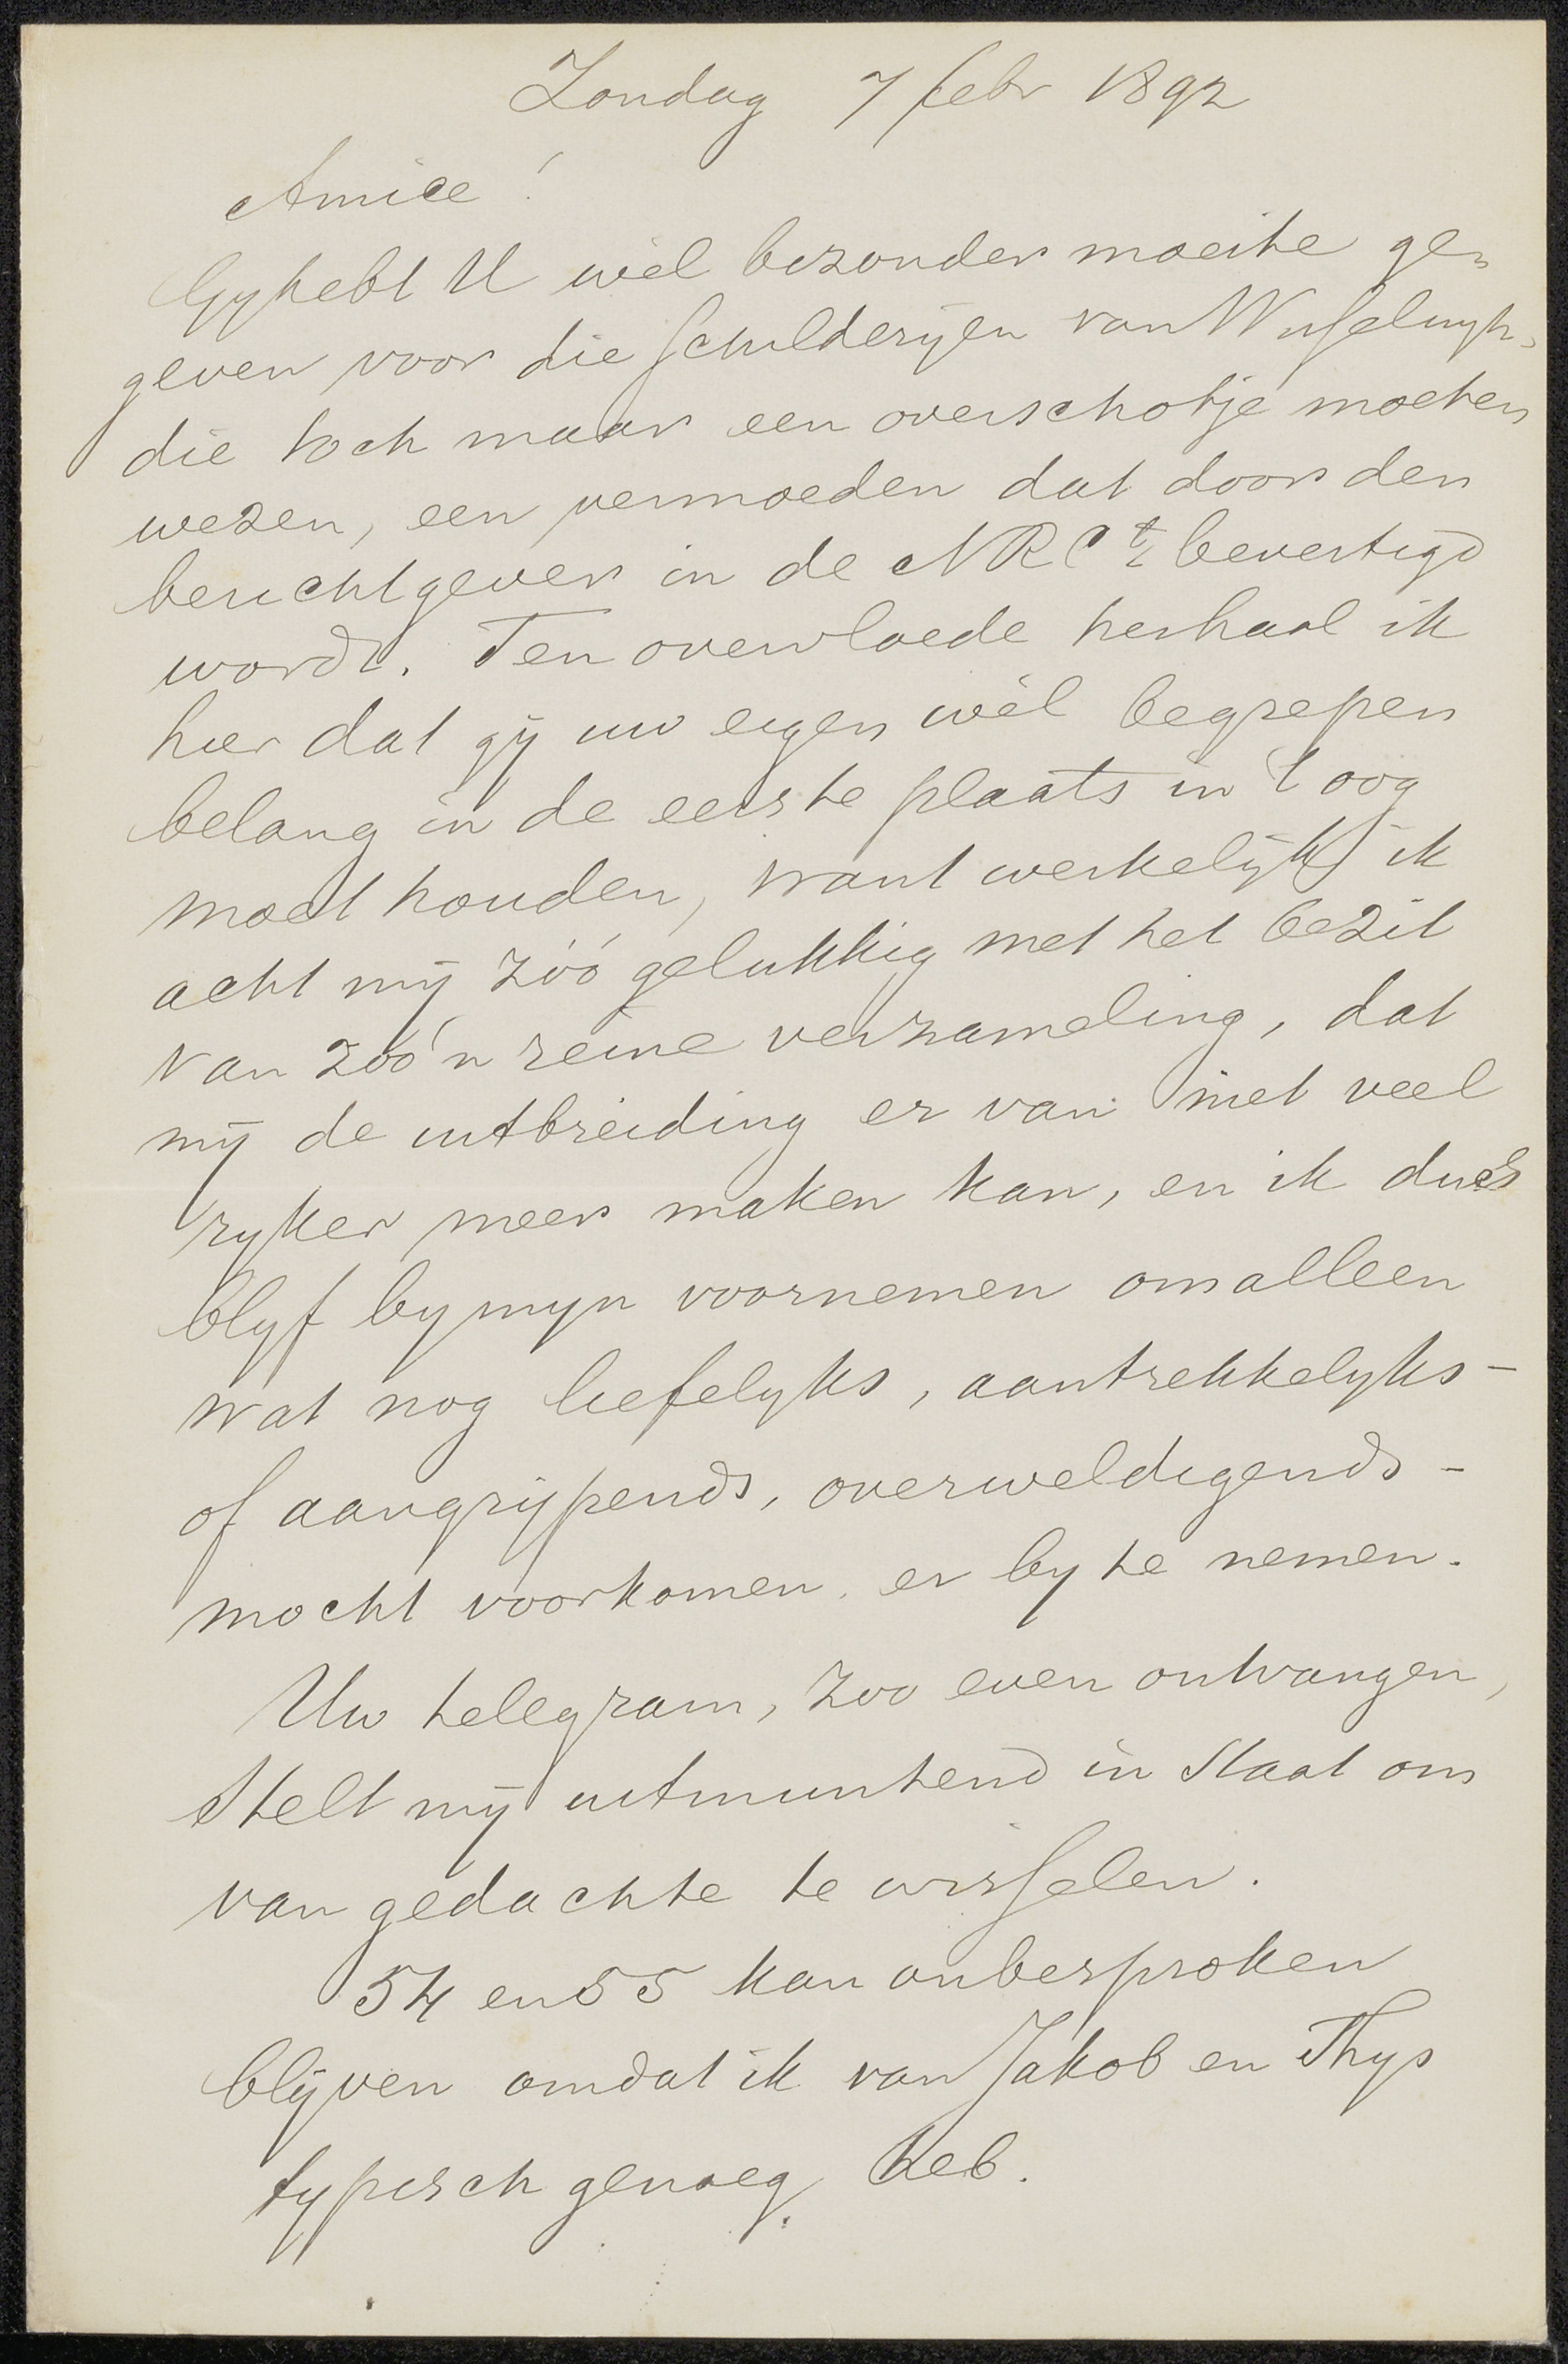 Zondag 7 febr 1892
Amice!
Gy hebt U wèl bezonder moeite ge-
geven voor die Schilderijen van Wisselingh,
die toch maar een overschotje moeten
wezen, een vermoeden dat door den
berichtgever in de NRCt bevestigd
wordt. Ten overvloede herhaal ik
hier dat gij uw eigen wèl begrepen
belang in de eerste plaats in 't oog
moet houden, want werkelijk ik
acht mij zóó gelukkig met het bezit
van zóó'n reine verzameling, dat
mij de uitbreiding er van niet veel
ryker meer maken kan, en ik dus
blyf by myn voornemen om alleen
wat nog liefelyks, aantrekkelyks -
of aangrijpends, overweldigends -
mocht voorkomen, er by te nemen.
Uw telegram, zoo even ontvangen,
Stelt mij uitmuntend in Staat om
van gedachte te wisselen.
54 en 55 kan onbesproken
blijven omdat ik van Jakob en Thys
typisch genoeg heb.